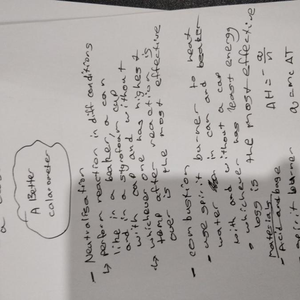 A Better
calorameter
- Neutralisation
↳ perform reaction in diff conditions
like in a beaker, a can
and in a styrofoam cup
with cap and without
↳ whichever one has highest
temp after reaction is
over is the most effective
- combustion
- use spirit burner to heat
water in can and beaker
with and without a cap
- whichever has least energy
loss is the most effective
materials
- Acid and base
- spirit burner
ΔH = - q/n
q = mc ΔT